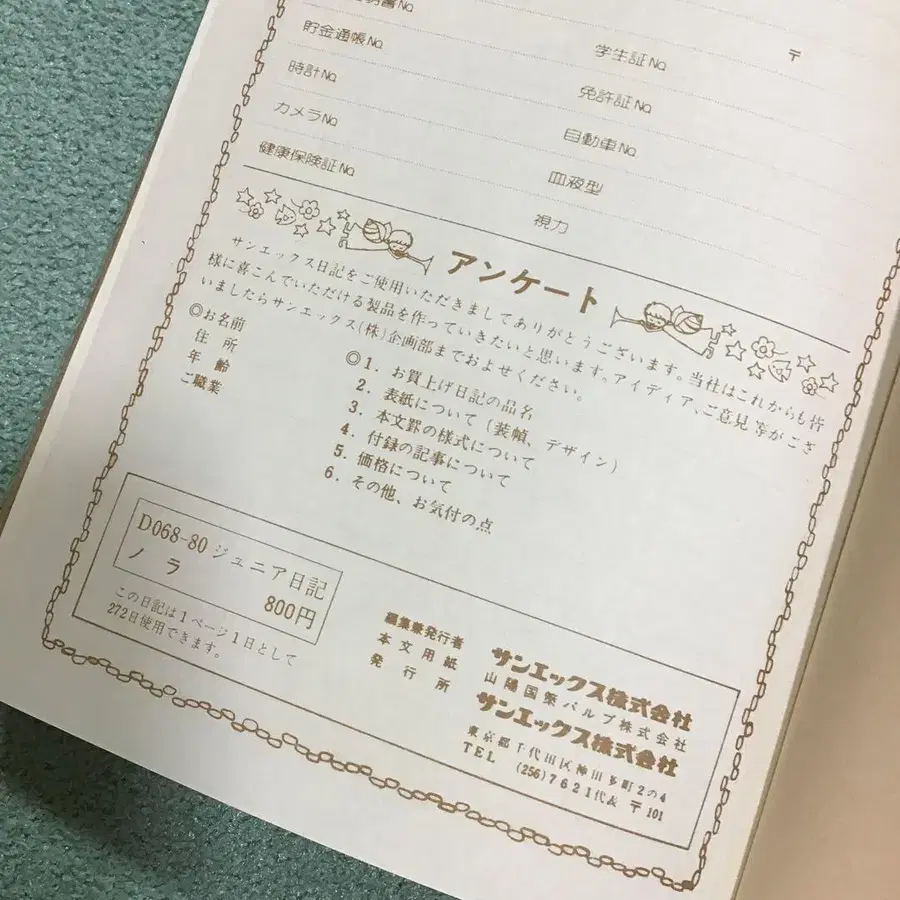 明書No.
貯金通帳No.
学生証No.
〒
時計No.
免許証No.
カメラNo.
自動車No.
健康保険証No.
血液型
視力
アンケート
サンエックス日記をご使用いただきましてありがとうございます。当社はこれからも皆
様に喜こんでいただける製品を作っていきたいと思います。アイディア、ご意見等がござ
いましたらサンエックス(株)企画部までおよせください。
◎お名前
住所
年齢
ご職業
◎1. お買上げ日記の品名
2. 表紙について(装幀、デザイン)
3. 本文罫の様式について
4. 付録の記事について
5. 価格について
6. その他、お気付の点
D068-80 ジュニア日記
ノラ
800円
この日記は1ページ1日として
272日使用できます。
編集兼発行者 サンエックス株式会社
本文用紙 山陽国策パルプ株式会社
発行所 サンエックス株式会社
東京都千代田区神田多町2の4
TEL (256)7621代表 〒101